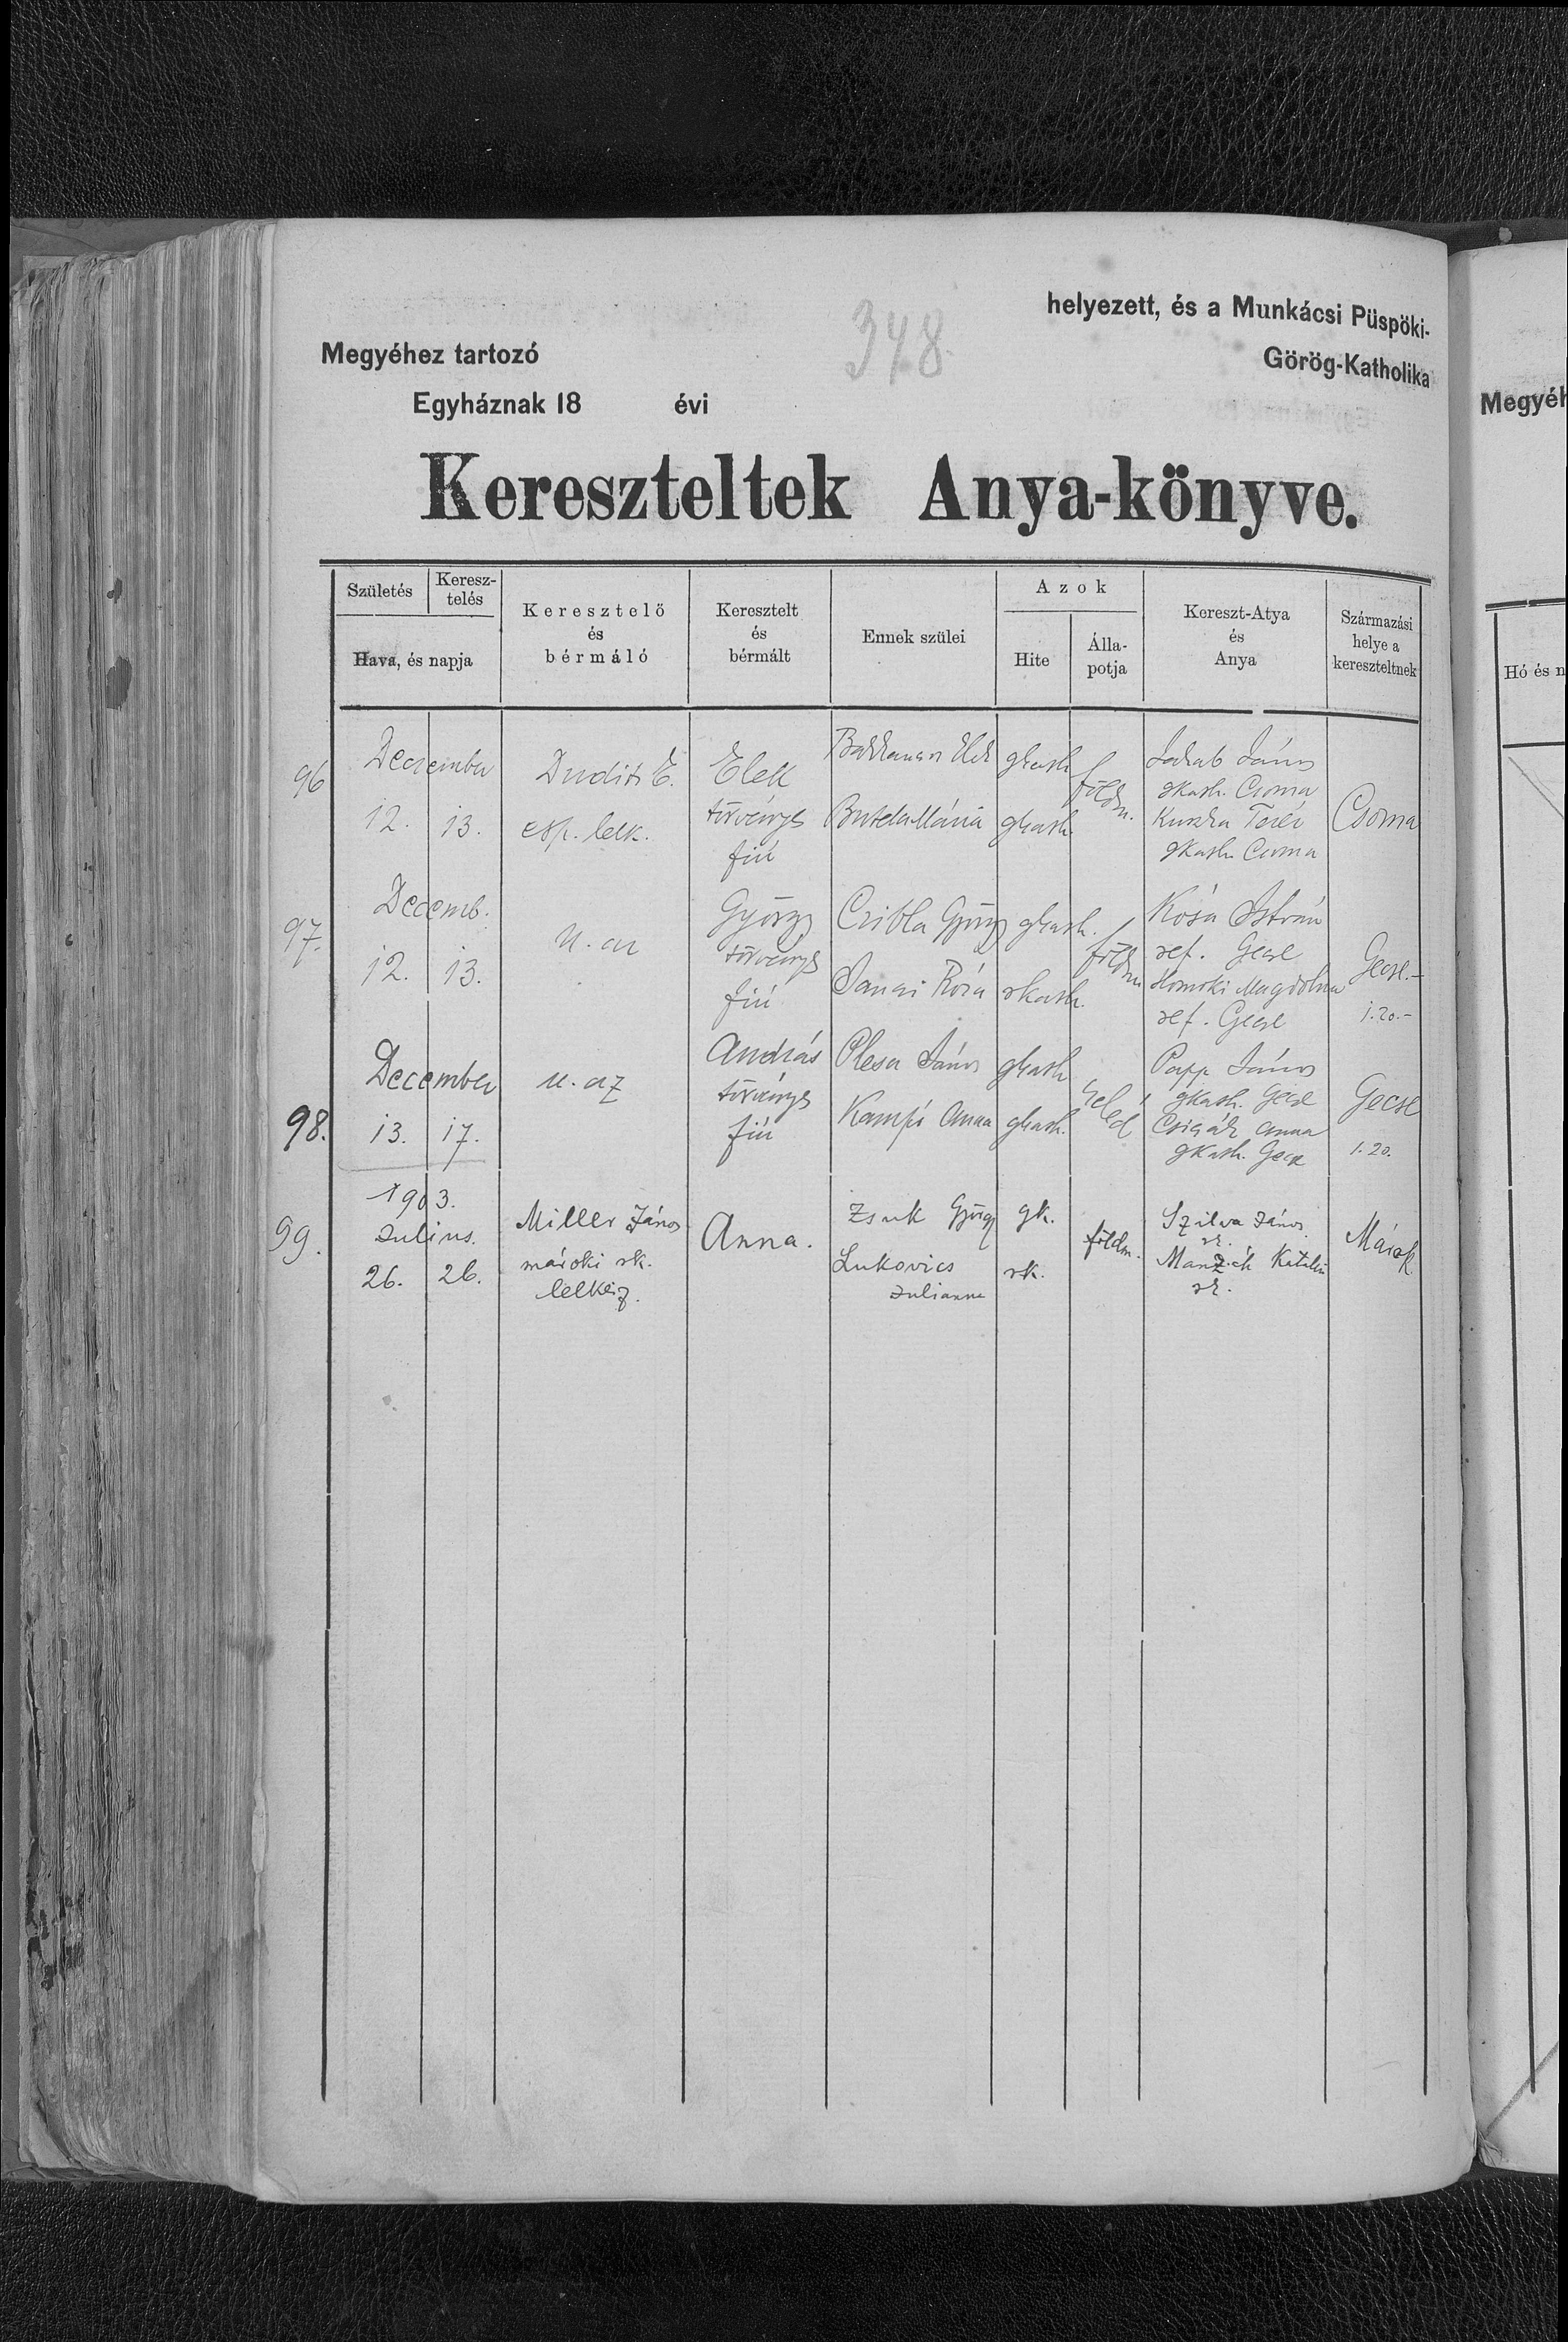 helyezett, és a Munkácsi Püspöki-
348
Megyéhez tartozó
Görög-Katholika
Egyháznak 18 évi
Megyéh
Kereszteltek Anya-könyve.
Születés
Keresz-
telés
Hava, és napja
Keresztelő
és
bérmáló
Keresztelt
és
bérmált
Ennek szülei
Azok
Hite
Álla-
potja
Kereszt-Atya
és
Anya
Származási
helye a
kereszteltnek
Hó és n
96
December
12. 13.
Dudits E.
esp. lelk.
Elek
törvényes
fiú
Elek
Mária
gkath
gkath
földm.
Jakab János
gkath. Csoma
Teréz
gkath Csoma
Csoma
97.
Decemb.
12. 13.
u. az
György
törvényes
fiú
Czibla György
Róza
gkath.
rkath.
földm
Kósa István
ref. Gecse
Homoki Magdolna
ref. Gecse
Gecse.-
1.20.-
98.
December
13. 17.
u. az
András
törvényes
fiú
Olesa János
Kampó Anna
gkath
gkath.
cseléd
Papp János
gkath. Gecse
Anna
gkath. Gecse
Gecse
1.20.
99.
1903.
Julius.
26. 26.
Miller János
mároki rk.
lelkész.
Anna.
Zsuk György
Lukovics
Julianna
gk.
rk.
földm.
Szilva János
rk.
Katalin
rk.
Márok